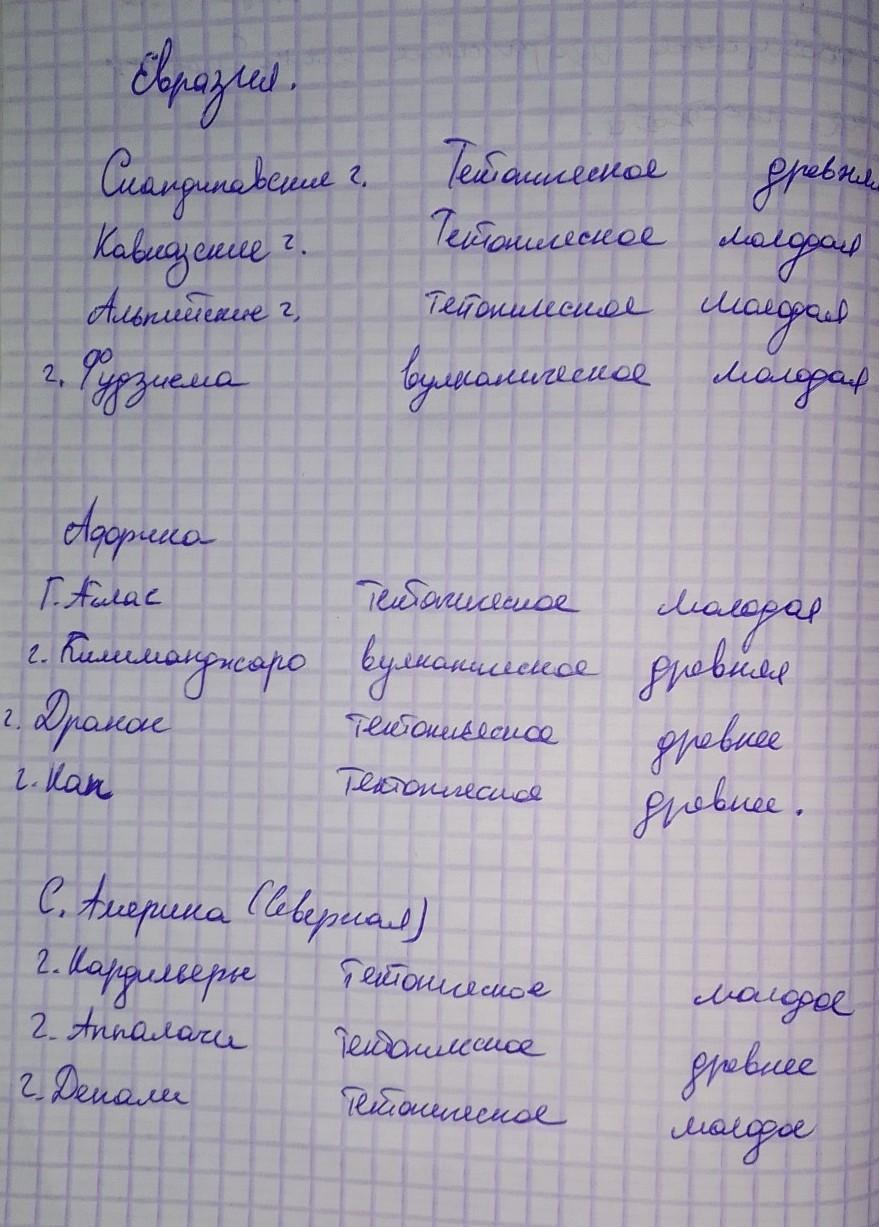 Евразия.
Скандинавские г. Тектоническое древняя
Кавказские г. Тектоническое молодая
Альпийские г. тектоническое молодая
г. Фудзиема вулканическое молодая
Африка
Г. Атлас тектоническое молодая
г. Килиманджаро вулканическое древняя
г. Дракон тектоническое древнее
г. Кап тектоническое древнее.
С. Америка (Северная)
г. Кардильеры тектоническое молодое
г. Аппалачи тектоническое древнее
г. Денали тектоническое молодое